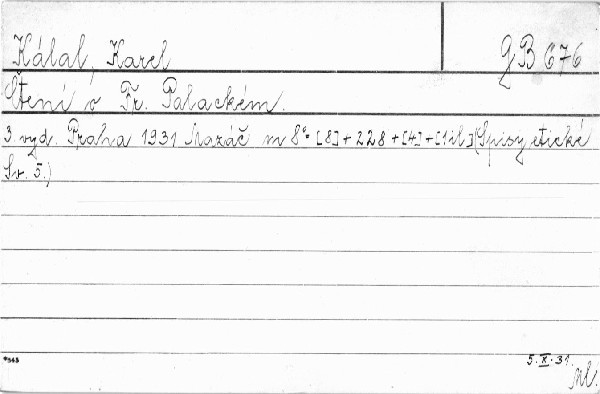 Kálal, Karel
gB 676
Čtení o Fr. Palackém.
3. vyd. Praha 1931 Mazáč m 8° [8]+228+[4]+[1il.](Spisy etické
Sv. 5.)
5. X. 31.